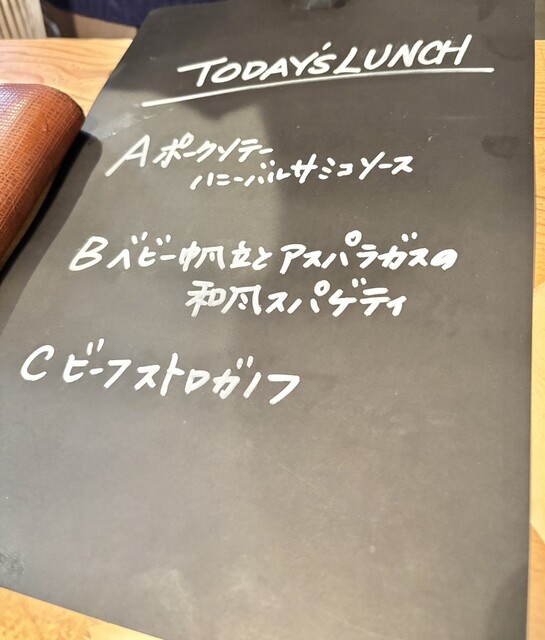 TODAY'S LUNCH
A ポークソテー
ハニーバルサミコソース
B ベビー帆立とアスパラガスの
和風スパゲティ
C ビーフストロガノフ